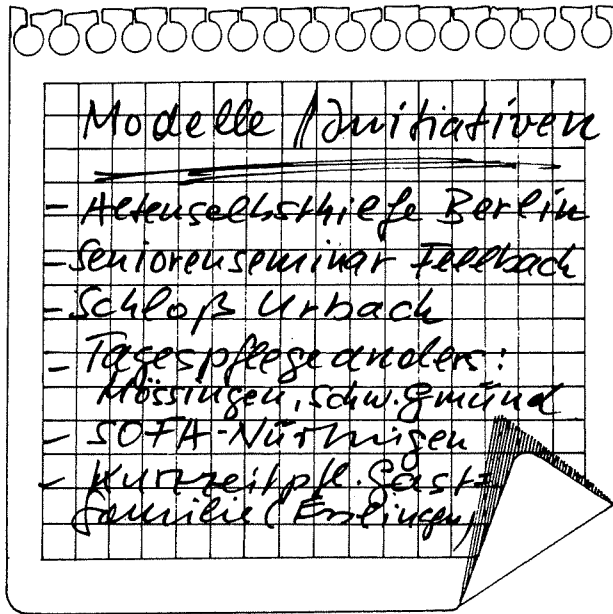 Modelle / Initiativen
- Altenselbsthilfe Berlin
- Seniorenseminar Fellbach
- Schloß Urbach
- Tagespflege anders:
Mössingen, Schw. Gmünd
- SOFA-Nürtingen
- Kurzzeitpfl. Gast=
familie (Esslingen)